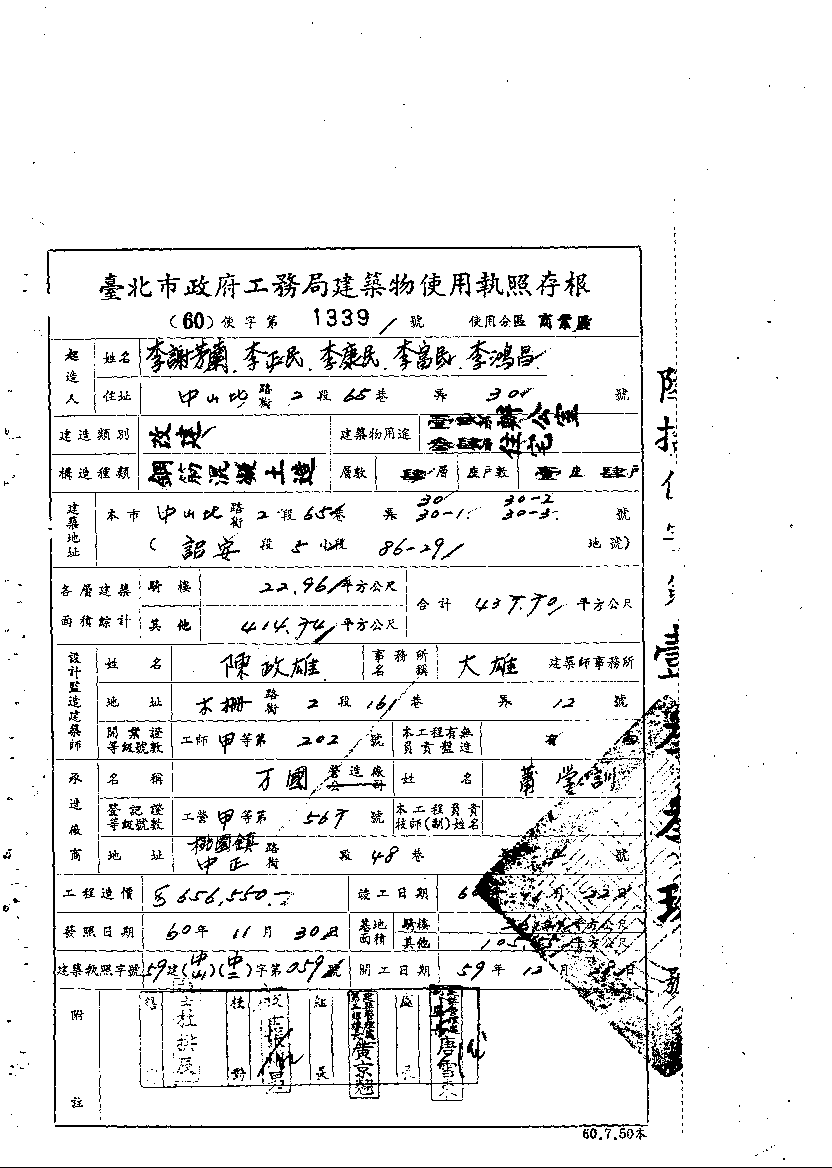 臺北市政府工務局建築物使用執照存根
(60)使字第 1339 號 使用分區 商業區
起造人 姓名 李謝芳蘭 李正民 李康民 李富民 李鴻昌
住址 中山北 路街 2 段 65 巷 弄 30 號
建造類別 改建 建築物用途 辦公室 住宅
構造種類 鋼筋混凝土造 層數 肆 層 座戶數 壹 座 肆 戶
建築地址 本市 中山北 路街 2 段 65 巷 弄 30 30-1 30-2 30-3 號
( 詔安 段 5 小段 86-29 地號)
各層建築面積綜計 騎樓 22.96 平方公尺 合計 437.70 平方公尺
其他 414.74 平方公尺
設計監造建築師 姓名 陳政雄 事務所名稱 大雄 建築師事務所
地址 木柵 路街 2 段 161 巷 弄 12 號
開業證等級號數 工師 甲 等第 202 號 本工程有無員責監造 有
承造廠商 名稱 万國 營造廠公司 姓名
登記證等級號數 工營 甲 等第 567 號 本工程員責技師(副)姓名
地址 桃園鎮中正 路街 段 48 巷 號
工程造價 $656,550.- 竣工日期 22日
發照日期 60年 11月 30日 基地面積 騎樓 平方公尺
其他 平方公尺
建築執照字號 59建(中山)(中二)字第059號 開工日期 59年 12月 日
附註
60.7.50本